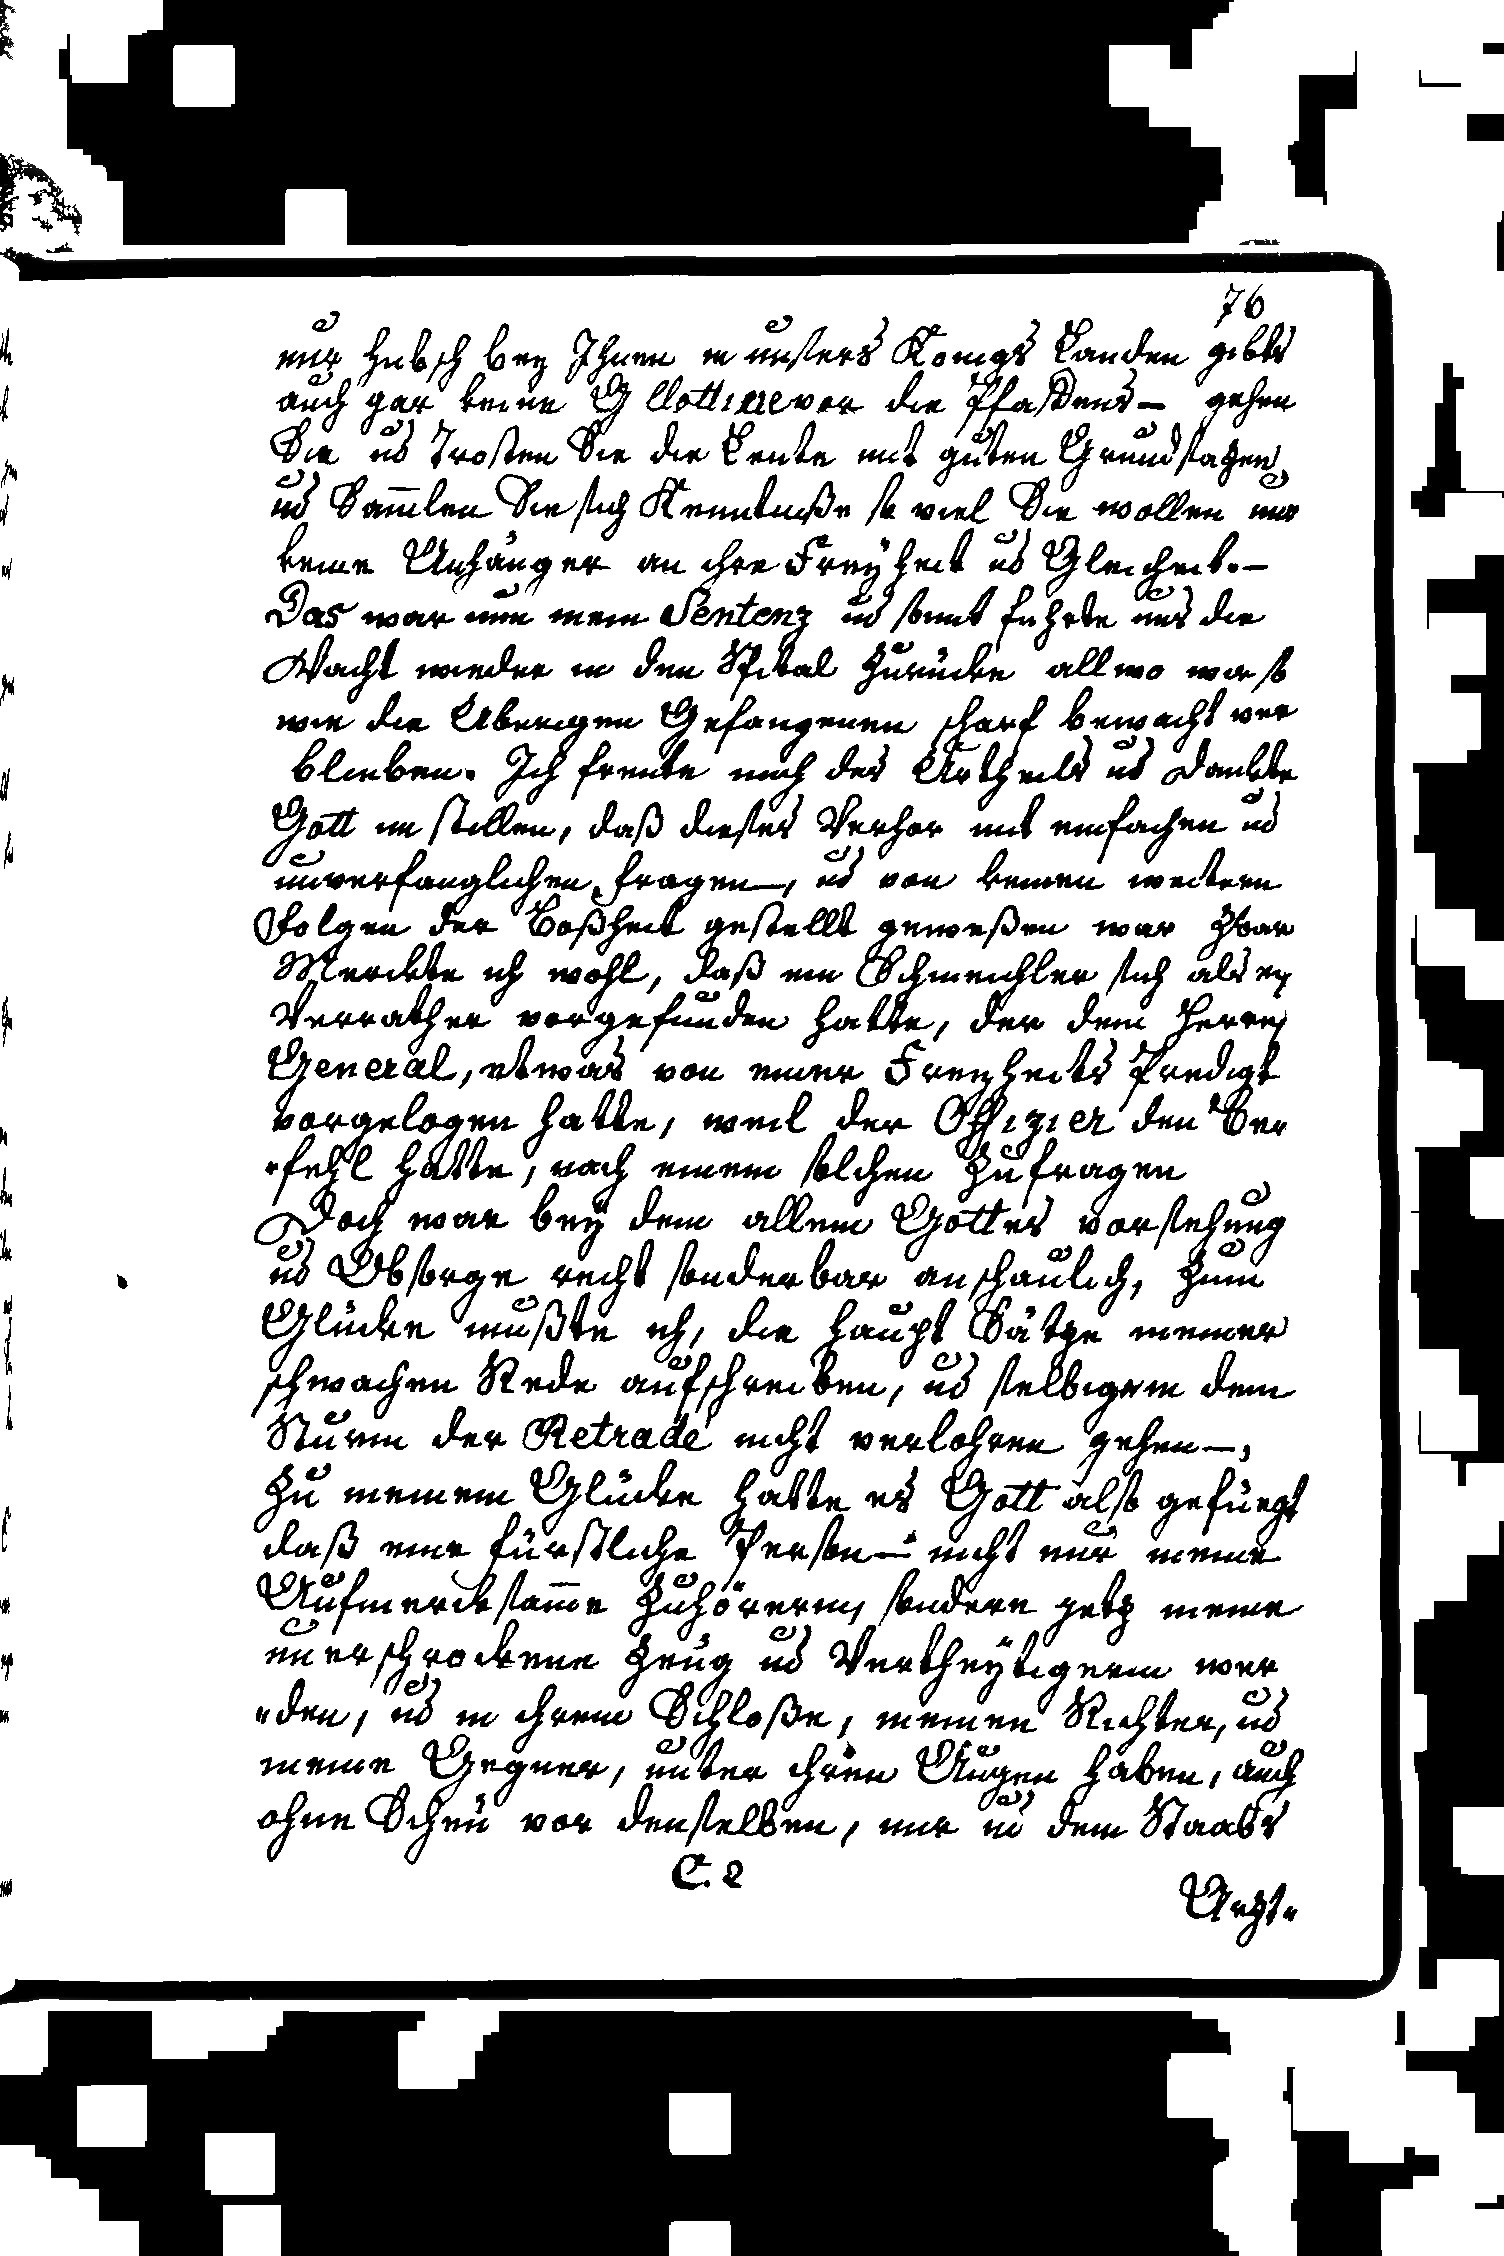 76
nur hubsch bey Ihnen in unsers Konigs Landen gibts
auch gar keine Gllottine vor die Pfaffens — gehen
Sie ud Trosten Sie die Leute mit guten Grundsatzen
ud Sam̄len Sie sich Kenntniße so viel Sie wollen nur
keine Anhänger an ihre Freyheit ud Gleicheit. —
Das war nun mein Sentenz ud somit fuhrte uns die
Wacht wieder in den Spital zurücke allwo wir so
wie die Uberigen Gefangenen scharf bewacht ver
blieben. Ich freute mich des Urtheils ud danckte
Gott im stillen, daß dieses Verhor mit einfachen ud
unverfanglichen fragen —, ud von keinen weitern
Folgen der Boßheit gestellt geweßen war zwar
Merckte ich wohl, daß ein Schmeichler sich als ein
Verrather vorgefunden hatte, der dem Herrn
General, etwas von einer Freyheits Predigt
vorgelogen hatte, weil der Offizier den Be
fehl hatte, nach einem solchen zu fragen
Doch war bey dem allem Gottes vorsehung
ud Obsorge recht sonderbar anschaulich, zum
Glücke mußte ich, die haupt Sätze meiner
schwachen Rede aufschreiben, ud selbige in dem
Sturm der Retrade nicht verlohren gehen —,
Zu meinem Glücke hatte es Gott also gefuegt
daß eine fürstliche Person — nicht nur meine
Aufmercksam̄e Zuhörerin, sondern jetz meine
unerschrockene Zeug ud Vertheytigerin wer
"den, ud in ihrem Schloße, meinen Richter, ud
meine Gegner, unter ihren Augen haben, auch
ohne Scheu vor denselben, mir ud dem Staabs
C. 2
Arzt"